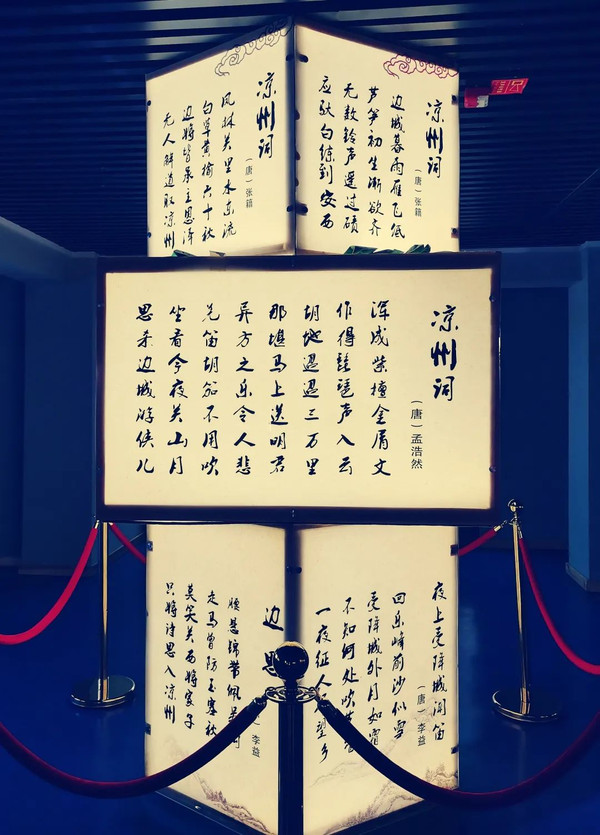 凉州词
（唐）张籍
边城暮雨雁飞低
芦笋初生渐欲齐
无数铃声遥过碛
应驮白练到安西
凉州词
（唐）张籍
凤林关里水东流
白草黄榆六十秋
边将皆承主恩泽
无人解道取凉州
凉州词
（唐）孟浩然
浑成紫檀金屑文
作得琵琶声入云
胡地迢迢三万里
那堪马上送明君
异方之乐令人悲
羌笛胡笳不用吹
坐看今夜关山月
思杀边城游侠儿
夜上受降城闻笛
（唐）李益
回乐峰前沙似雪
受降城外月如霜
不知何处吹
一夜征人望乡
边思
李益
腰悬锦带佩吴钩
走马曾防玉塞秋
莫笑关西将家子
只将诗思入凉州